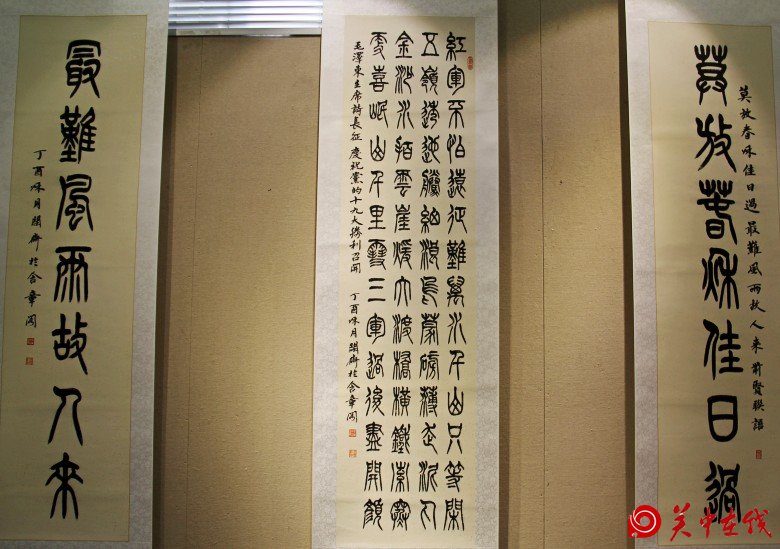 莫放春秋佳日過最難風雨故人來前賢聯語
莫放春秋佳日過
紅軍不怕遠征難萬水千山只等閑
五嶺逶迤騰細浪烏蒙磅礴走泥丸
金沙水拍雲崖暖大渡橋橫鐵索寒
更喜岷山千里雪三軍過後盡開顏
毛澤東主席詩長征 慶祝黨的十九大勝利召開 丁酉秋月 齋於含章閣
最難風雨故人來
丁酉秋月 齋於含章閣
关中在线